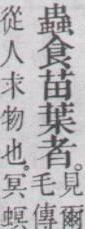 蟲食苗葉者。
見爾
毛傳
從人求物也。冥螟